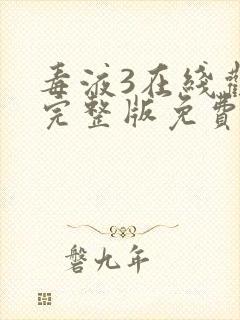 毒液3在线
完整版免费
磐九年